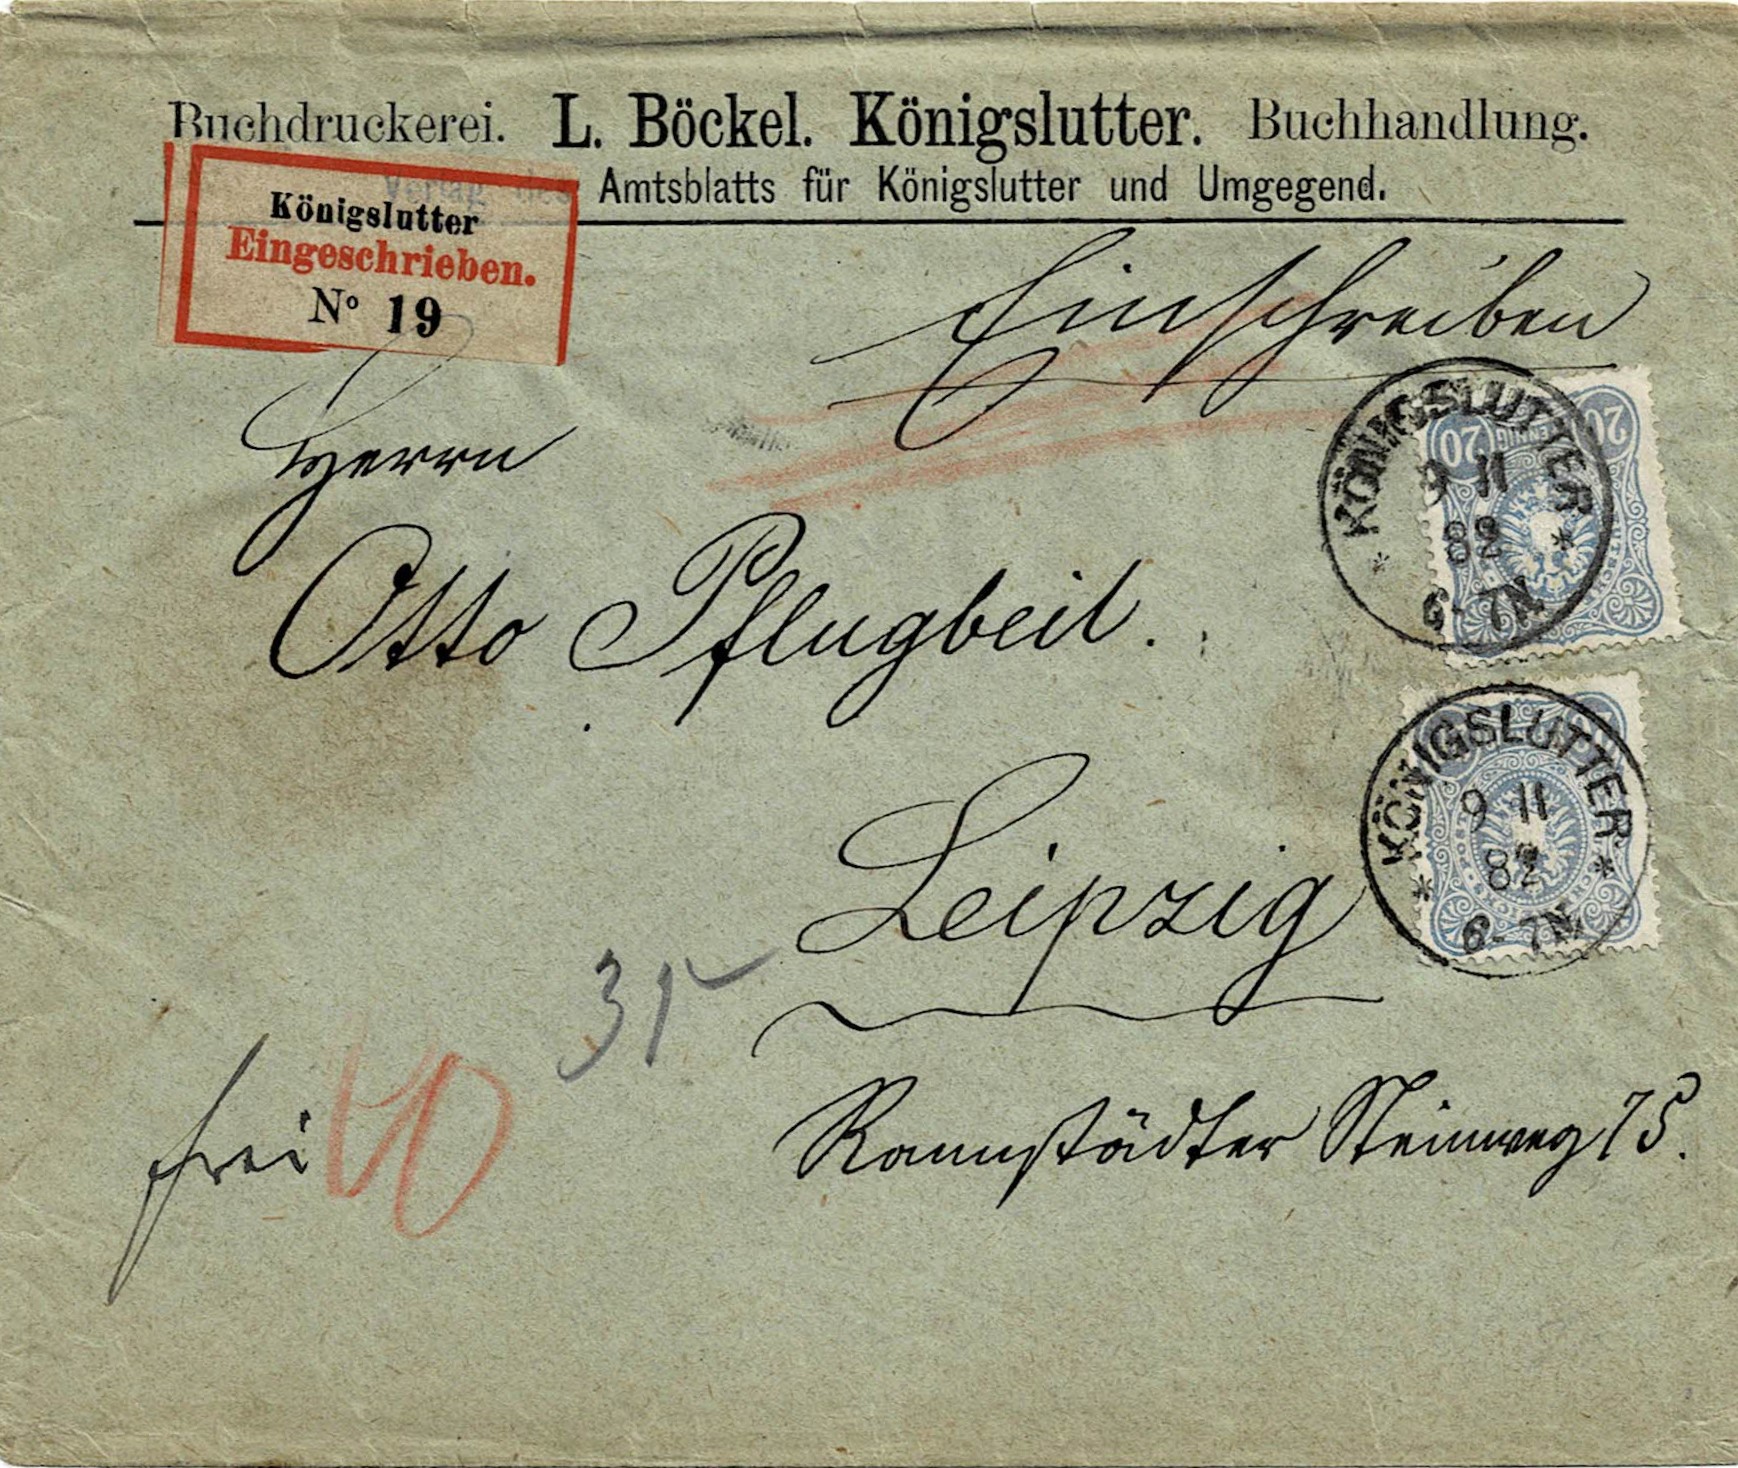 Buchdruckerei. L. Böckel. Königslutter. Buchhandlung.
Verlag des Amtsblatts für Königslutter und Umgegend.
Königslutter
Eingeschrieben.
Nº 19
Einschreiben
Herrn
Otto Pflugbeil.
Leipzig
Rannstädter Steinweg 75.
frei
40
KÖNIGSLUTTER
9 11
82
6-7N.
20 PFENNIG 20
KÖNIGSLUTTER
9 11
82
6-7N.